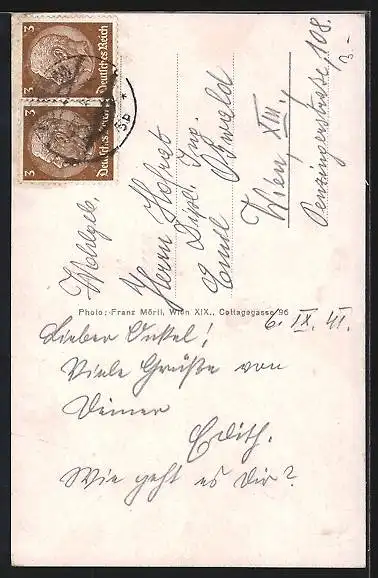 3
Deutsches Reich
3
Deutsches Reich
Wohlgeb.
Herrn Hofrat
Dipl. Ing.
Emil Ostwald
Wien, XIII.,
Penzingerstraße 108
3.-
Photo: Franz Mörtl, Wien XIX., Cottagegasse 96
6. IX. 41.
Lieber Onkel!
Viele Grüße von
Deiner
Edith.
Wie geht es Dir?